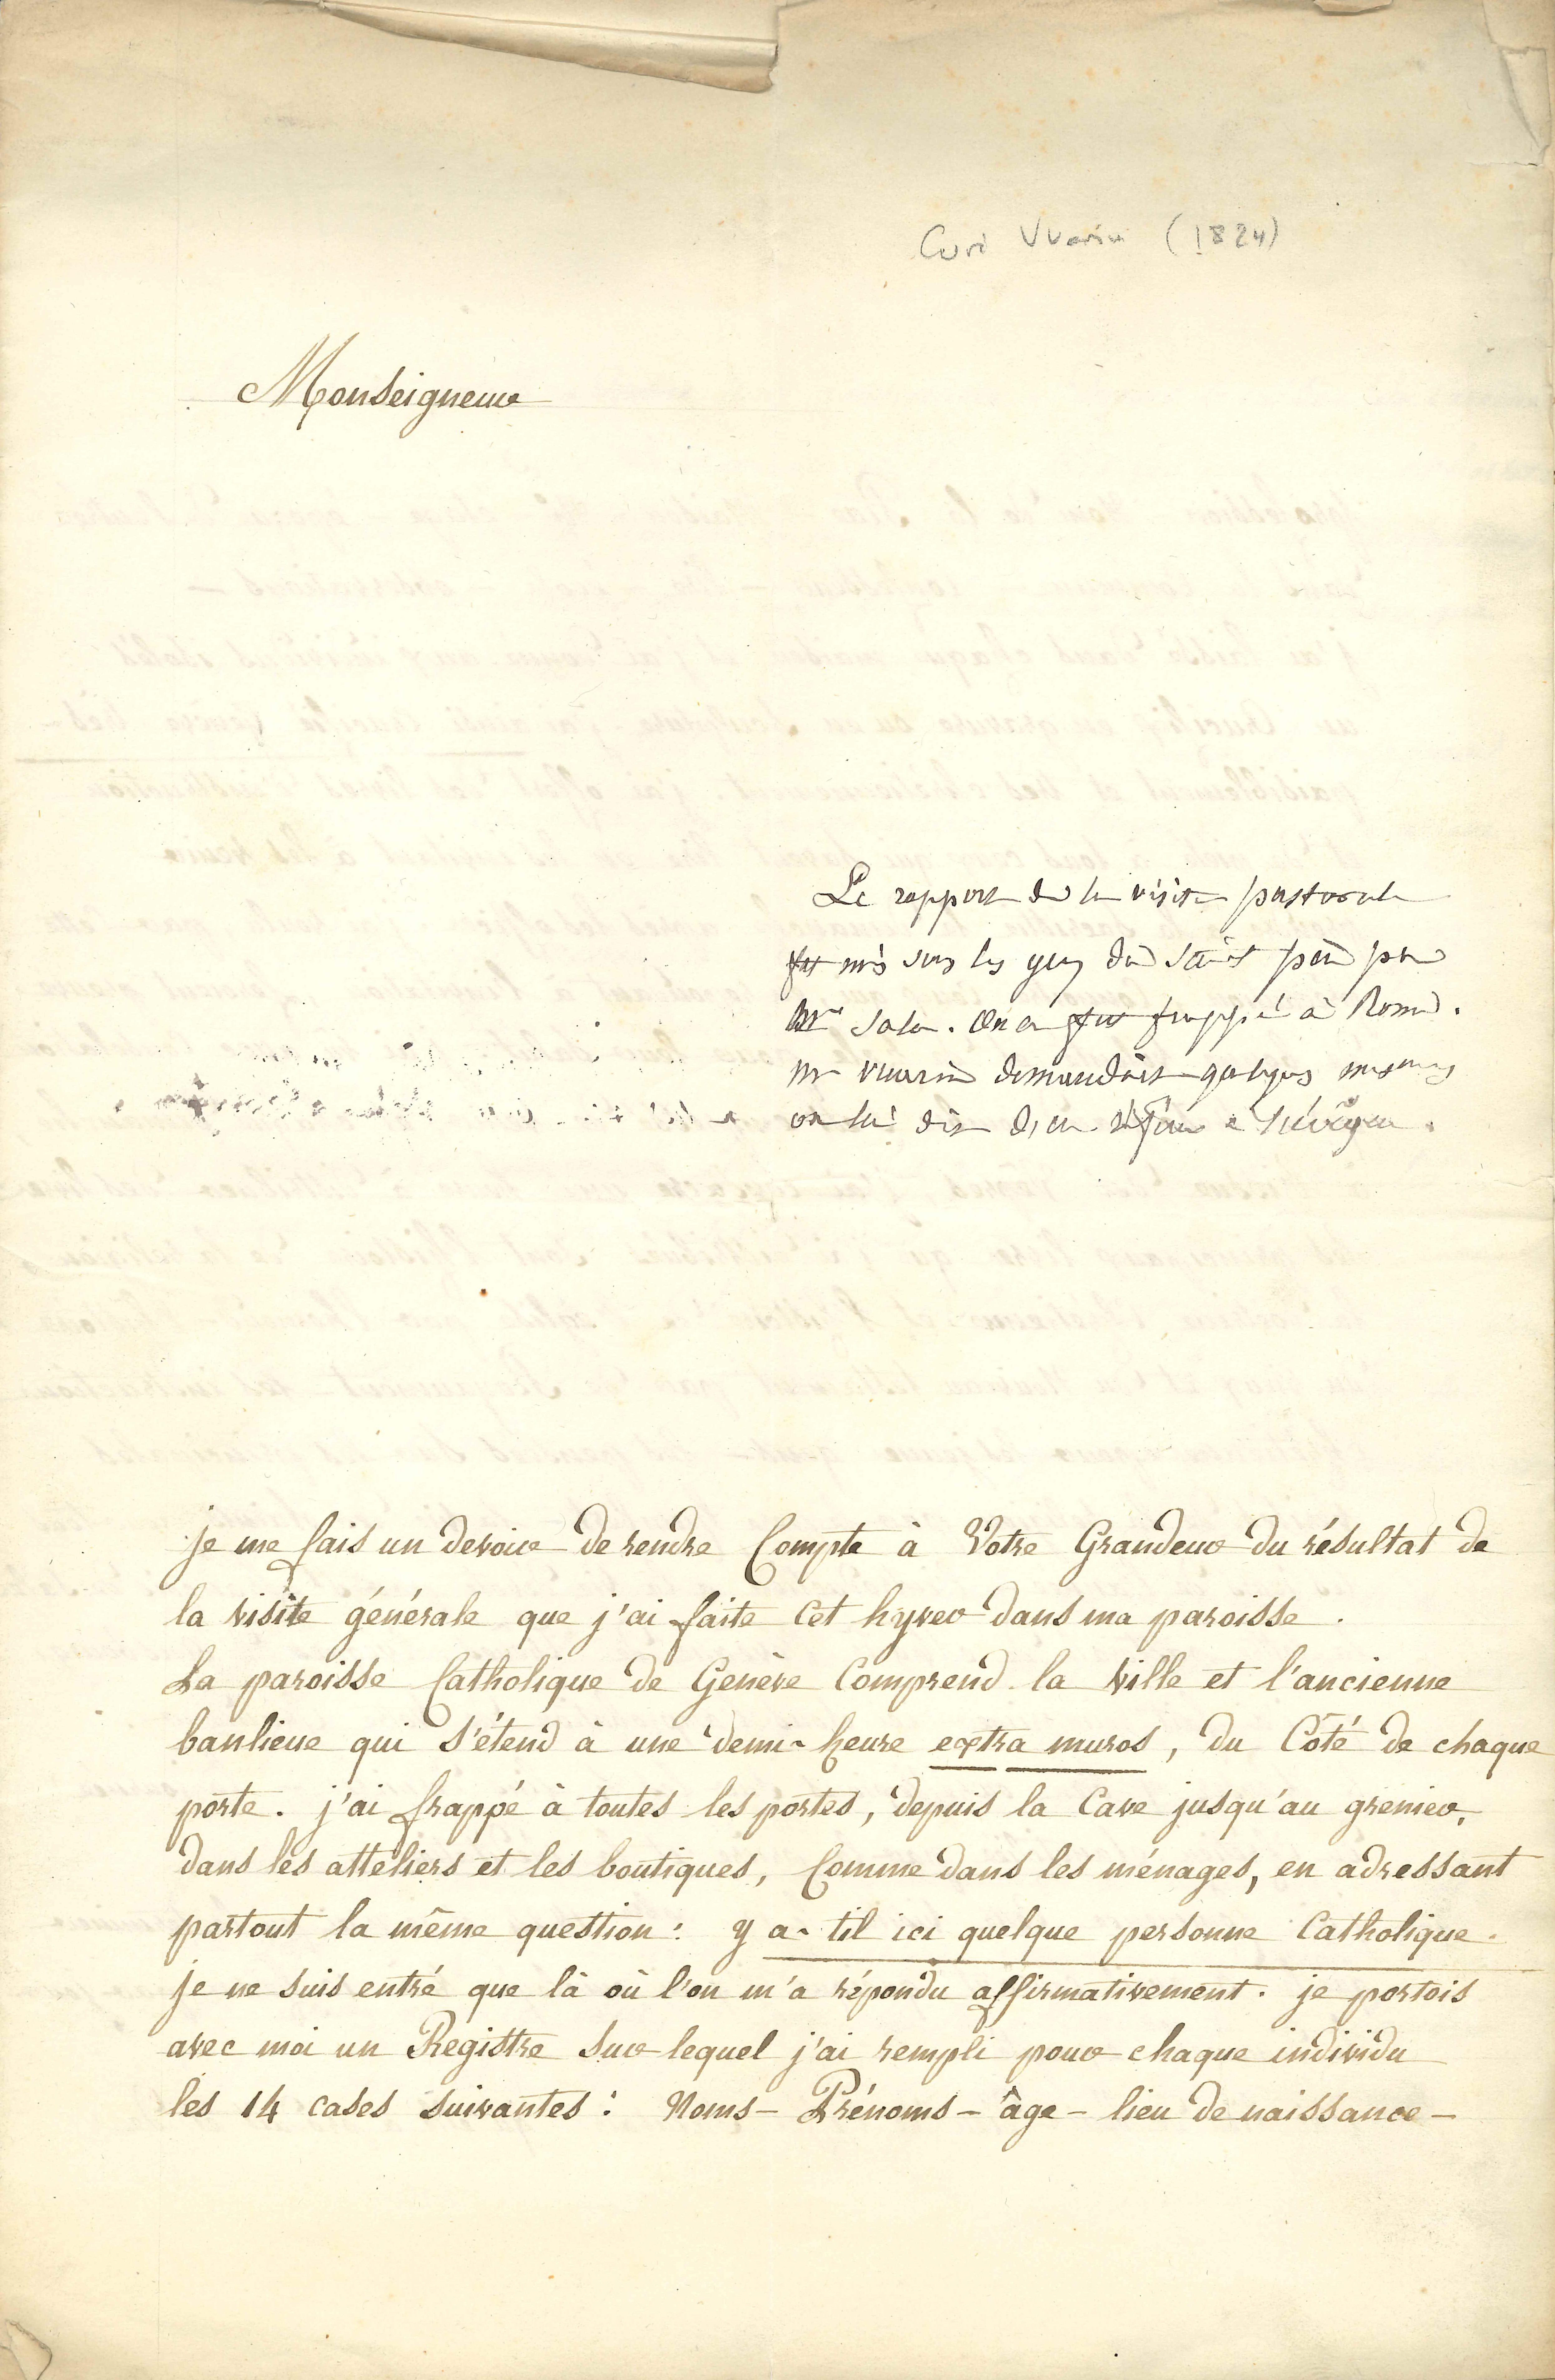 Curé Vuarin (1824)
Monseigneur
Le rapport de la visite pastorale
fut mis sous les yeux du saint père par
Mr Sala. On en fut frappé à Rome.
Mr Vuarin demandait quelques mesures
on lui dit d'en référer à l'évêque.
je me fais un devoir de rendre Compte à Votre Grandeur du résultat de
la visite générale que j'ai faite cet hyver dans ma paroisse.
La paroisse Catholique de Genève Comprend la ville et l'ancienne
banlieue qui s'étend à une demi-heure extra muros, du Côté de chaque
porte. j'ai frappé à toutes les portes, depuis la Cave jusqu'au grenier,
dans les atteliers et les boutiques, Comme dans les ménages, en adressant
partout la même question: y a-til ici quelque personne Catholique.
je ne suis entré que là où l'on m'a répondu affirmativement. je portois
avec moi un Registre sur lequel j'ai rempli pour chaque individu
les 14 cases suivantes: Noms - Prénoms - âge - lieu de naissance -